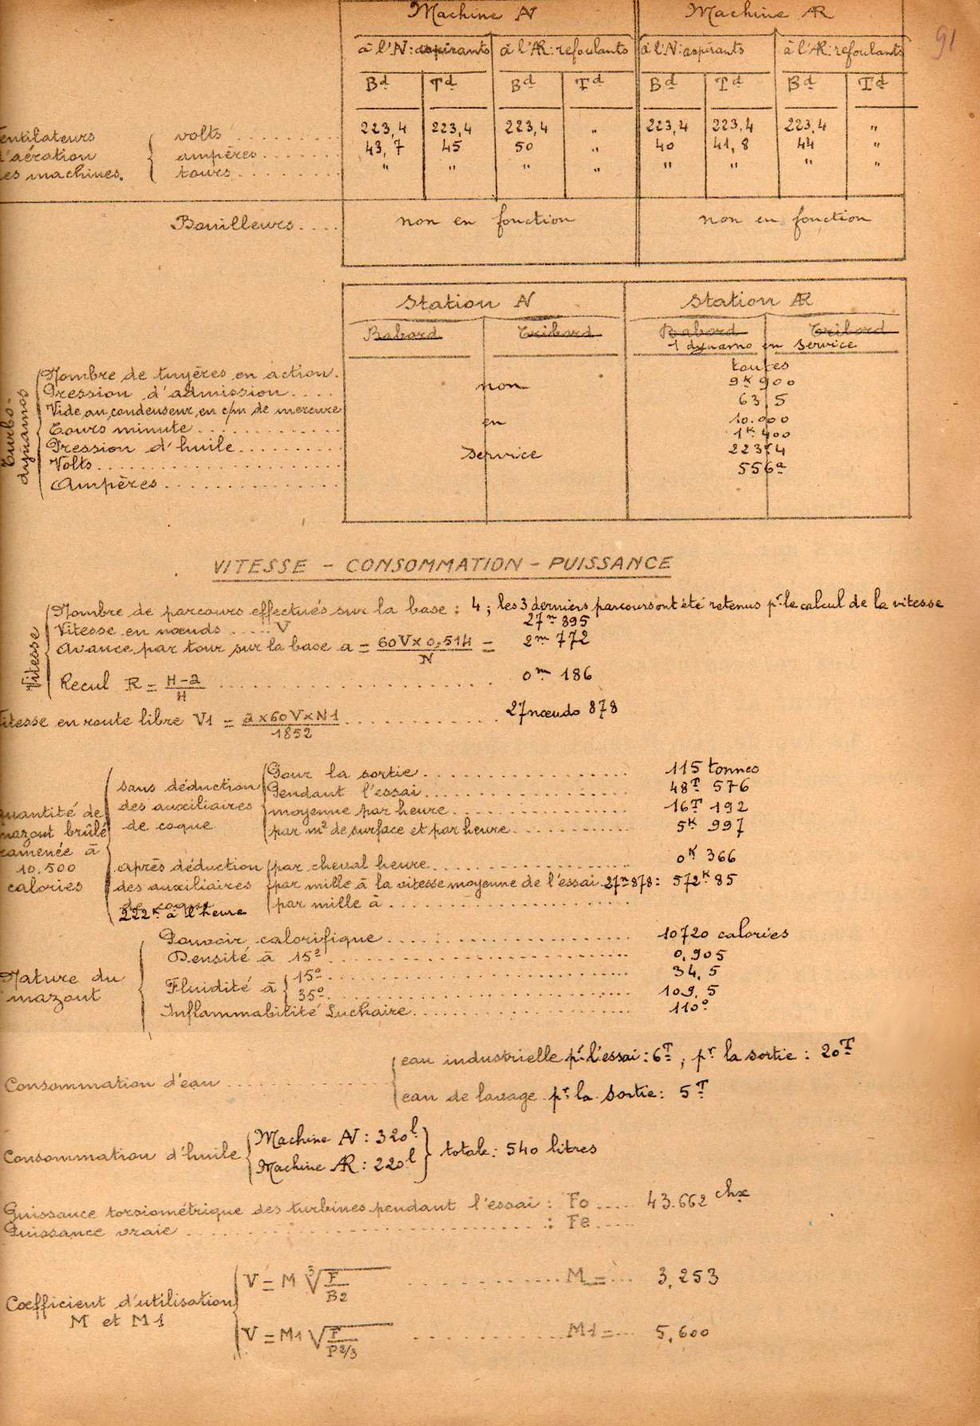 Machine AV Machine AR
91
à l'AV: aspirants à l'AR: refoulants à l'AV: aspirants à l'AR: refoulants
Bd Td Bd Td Bd Td Bd Td
entilateurs volts 223,4 223,4 223,4 " 223,4 223,4 223,4 "
d'aération ampères 43,7 45 50 " 40 41,8 44 "
es machines. tours " " " " " " " "
Bouilleurs non en fonction non en fonction
Station AV Station AR
Babord Tribord Babord Tribord
1 dynamo en service
Turbo-dynamos
Nombre de tuyères en action. toutes
Pression d'admission non 9K900
Vide au condenseur en c/m de mercure 63,5
Tours minute en 10.000
Pression d'huile 1K400
Volts service 223,4
Ampères 556a
VITESSE - CONSOMMATION - PUISSANCE
Vitesse
Nombre de parcours effectués sur la base : 4 ; les 3 derniers parcours ont été retenus pr le calcul de la vitesse
Vitesse en nœuds V 27n 895
Avance par tour sur la base a = 60V x 0,514 / N = 2m 772
Recul R = H-a / H 0m 186
itesse en route libre V1 = a x 60V x N1 / 1852 27 nœuds 878
uantité de mazout brûlé ramenée à 10.500 calories
sans déduction des auxiliaires de coque
Pour la sortie 115 tonnes
Pendant l'essai 48T 576
moyenne par heure 16T 192
par m2 de surface et par heure 5K 997
après déduction des auxiliaires de coque
222K à l'heure
par cheval heure 0K 366
par mille à la vitesse moyenne de l'essai 27n878: 572K 85
par mille à
Nature du mazout
Pouvoir calorifique 10720 calories
Densité à 15° 0,905
Fluidité à 15° 34,5
35° 109,5
Inflammabilité Luchaire 110°
Consommation d'eau
eau industrielle pr l'essai: 6T ; pr la sortie : 20T
eau de lavage pr la sortie: 5T
Consommation d'huile Machine AV : 320l
Machine AR : 220l totale: 540 litres
Puissance torsiométrique des turbines pendant l'essai : Fo 43.662 chx
Puissance vraie : Fe
Coefficient d'utilisation M et M1
V = M ∛F/B2 M = 3,253
V = M1 √F/P2/3 M1 = 5,600